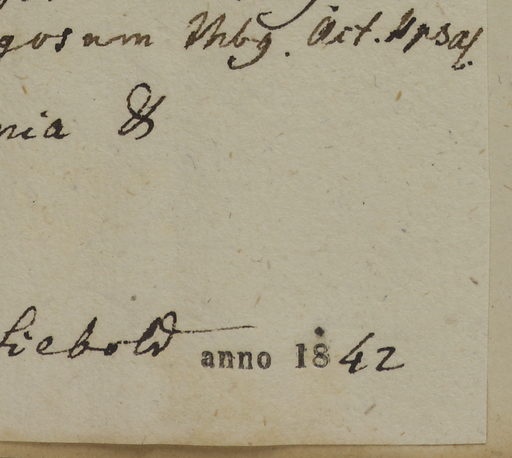 gosum Thbg. Act. Upsal.
nia &
Siebold anno 1842